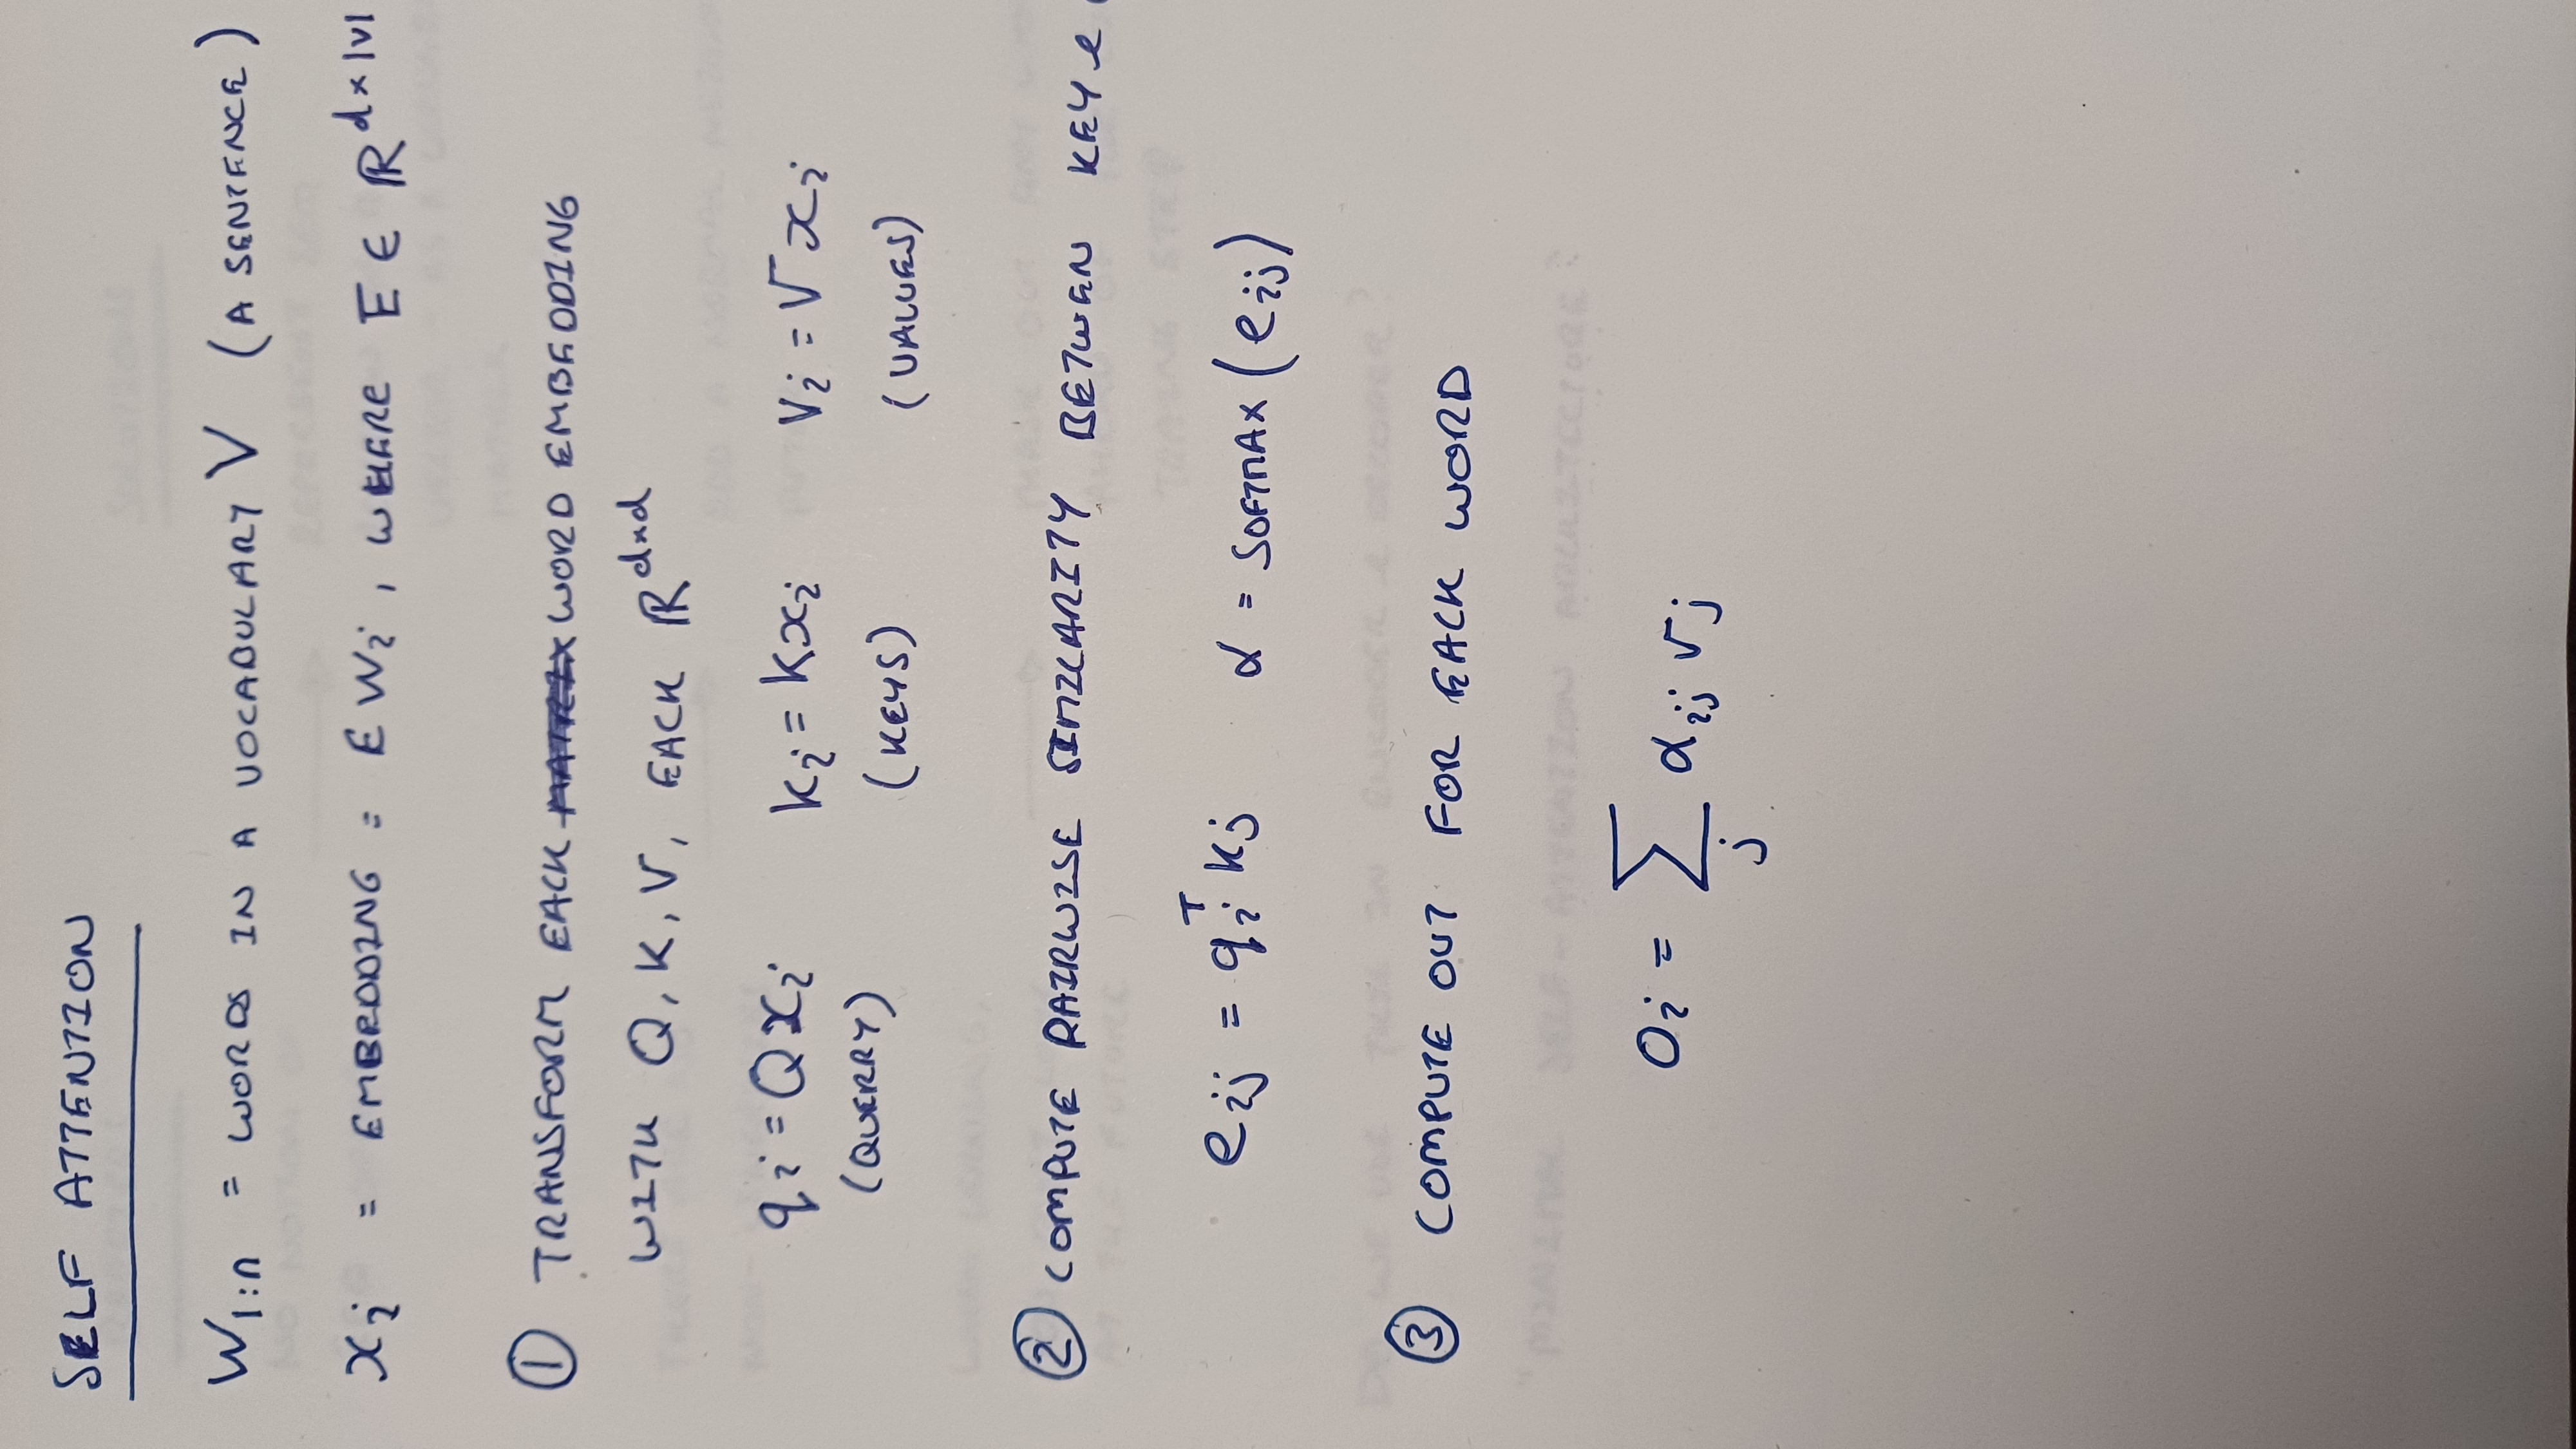 SELF ATTENTION
W1:n = WORDS IN A VOCABULARY V (A SENTENCE)
xi = EMBEDDING = E Wi, WHERE E ∈ ℝ^d×|V|
① TRANSFORM EACH MATRIX WORD EMBEDDING
WITH Q, K, V, EACH ℝ^d×d
qi = Qxi ki = Kxi Vi = Vxi
(QUERRY) (KEYS) (VALUES)
② COMPUTE PAIRWISE SIMILARITY BETWEN KEY &
eij = qi^T kj α = SOFTMAX(eij)
③ COMPUTE OUT FOR EACH WORD
Oi = Σj αij vj